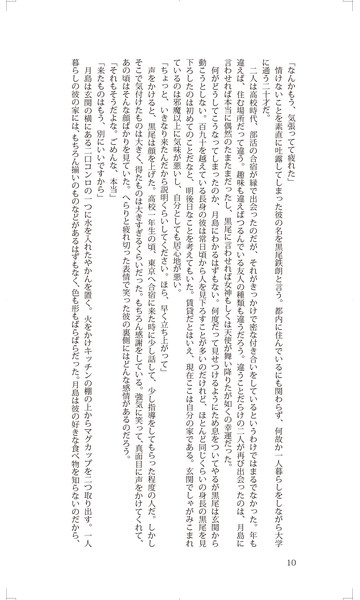 「なんかもう、気張ってて疲れた」
情けないことを素直に吐露してしまった彼の名を黒尾鉄朗と言う。都内に住んでいるにも関わらず、何故か一人暮らしをしながら大学
に通う二十才だ。
二人は高校時代、部活の合宿が縁で出会ったのだが、それがきっかけで密な付き合いをしているというわけではまるでなかった。年も
違えば、住む場所だって違う。趣味も違えばつるんでいる友人の種類も違うだろう。違うことだらけの二人が再び出会ったのは、月島に
言わせれば本当に偶然のたまたまだったし、黒尾に言わせれば女神もしくは天使が舞い降りたが如くの幸運だった。
何がどうしてこうなってしまったのか、月島にわかるはずもない。何度だって見せつけるようにため息をついてやるが黒尾は玄関から
動こうとしない。百九十を越えている長身の彼は常日頃から人を見下ろすことが多いのだけれど、ほとんど同じくらいの身長の黒尾を見
下ろしたのは初めてのことだなと、明後日なことを考えてもいた。賃貸だとはいえ、現在ここは自分の家である。玄関でしゃがみこまれ
ているのは邪魔以上に気味が悪いし、自分としても居心地が悪い。
「ちょっと、いきなり来たんだから説明くらいしてください。ほら、早く立ち上がって」
声をかけると、黒尾は顔を上げた。高校一年生の頃、東京へ合宿に来た時に少し話して、少し指導をしてもらった程度の人だ。しかし
そこで気付けたものは大きく、得たものは大きすぎるくらいだった。もちろん感謝をしている。強気に笑って、真面目に声をかけてくれて、
あの頃はそんな顔ばかりを見ていた。へらりと疲れ切った表情で笑った彼の裏側にはどんな感情があるのだろう。
「それもそうだよな。ごめんな、本当」
「来たものはもう、別にいいですから」
月島は玄関の横にある二口コンロの一つに水を入れたやかんを置く。火をかけキッチンの棚の上からマグカップを二つ取り出す。一人
暮らしの彼の家には、もちろん揃いのものなどがあるはずもなく、色も形もばらばらだった。月島は彼の好きな食べ物を知らないのだから、
10